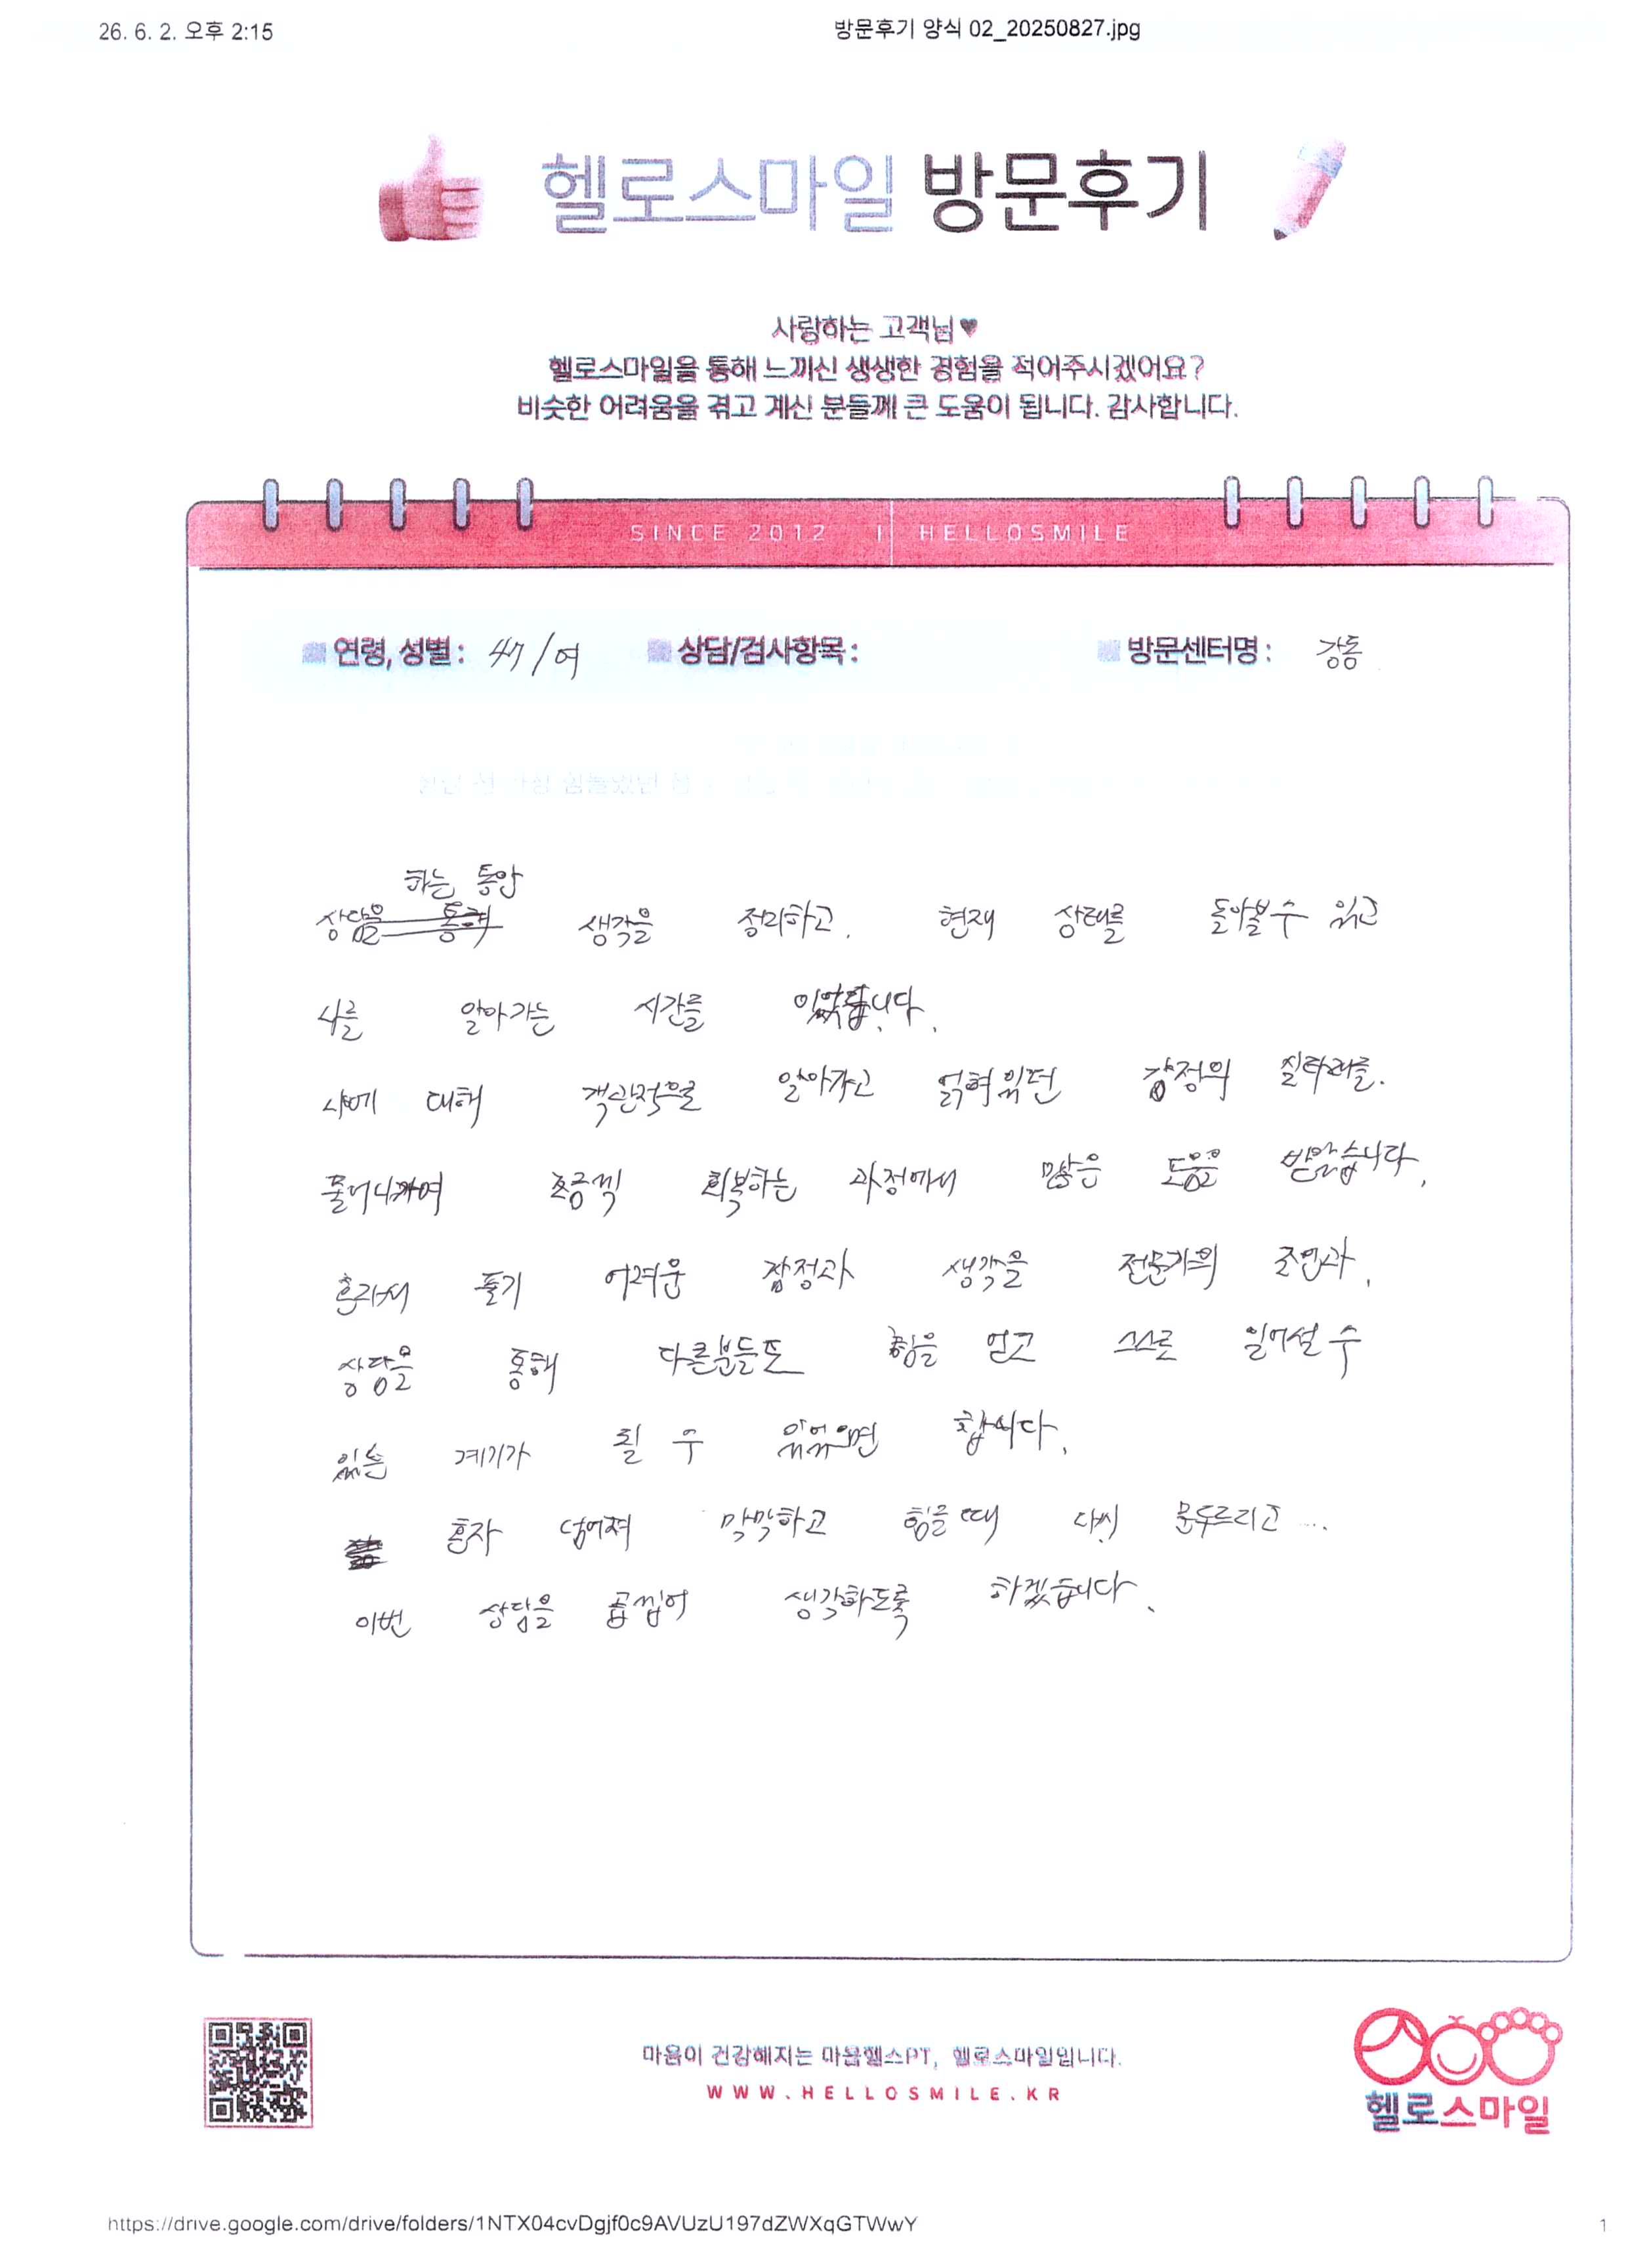 26. 6. 2. 오후 2:15
방문후기 양식 02_20250827.jpg
헬로스마일 방문후기
사랑하는 고객님♥
헬로스마일을 통해 느끼신 생생한 경험을 적어주시겠어요?
비슷한 어려움을 겪고 계신 분들께 큰 도움이 됩니다. 감사합니다.
SINCE 2012 | HELLOSMILE
연령, 성별 : 47/여
상담/검사항목 :
방문센터명 : 강동
하는 동안
상담을 통해 생각을 정리하고. 현재 상태를 돌아볼 수 있고
나를 알아가는 시간을
나에 대해 객관적으로 알아가고 얽혀있던 감정의 실타래를.
조금씩 회복하는 과정에서 많은 도움을 받았습니다.
혼자서 풀기 어려운 감정과 생각을 전문가의 조언과,
상담을 통해 다른분들도 힘을 얻고 스스로 일어설 수
있는 계기가 될 수 있었으면 합니다.
혼자 넘어져 막막하고 힘들 때 다시 문두드리고 ...
이번 상담을 곱씹어 생각하도록 하겠습니다.
마음이 건강해지는 마음헬스PT, 헬로스마일입니다.
WWW.HELLOSMILE.KR
헬로스마일
https://drive.google.com/drive/folders/1NTX04cvDgjf0c9AVUzU197dZWXqGTWwY
1